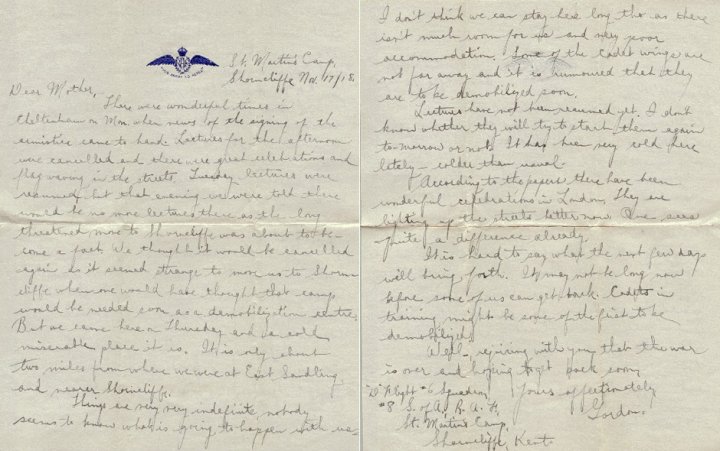 St. Martin's Camp,
Shorncliffe Nov. 17/18.
Dear Mother,
There were wonderful times in
Cheltenham on Mon. when news of the signing of the
armistice came to hand. Lectures for the afternoon
were cancelled and there were great celebrations and
flag waving in the streets. Tuesday lectures were
resumed but that evening we were told there
would be no more lectures there as the long
threatened move to Shorncliffe was about to be-
come a fact. We thought it would be cancelled
again as it seemed strange to move us to Shorn-
cliffe when one would have thought that camp
would be needed soon as a demobilization centre.
But we came here on Thursday and a cold
miserable place it is. It is only about
two miles from where we were at East Sandling
and nearer Shorncliffe.
Things are very very indefinite nobody
seems to know what is going to happen with us-
I don't think we can stay here long tho as there
isn't much room for us and very poor
accommodation. Some of the Cadet wings are
not far away and it is rumoured that they
are to be demobilized soon.
Lectures have not been resumed yet. I don't
know whether they will try to start them again
to-morrow or not. It has been very cold here
lately - colder than usual.
According to the papers there have been
wonderful celebrations in London. They are
lighting up the streets better now. One sees
quite a difference already.
It is hard to say what the next few days
will bring forth. It may not be long now
before some of us can get back. Cadets in
training might be some of the first to be
demobilized.
Well - rejoicing with you that the war
is over and hoping to get back soon
Yours affectionately
Gordon.
"D" Flight #6 Squadron
#8 S. of A. R.A.F.
St. Martin's Camp
Shorncliffe, Kent.